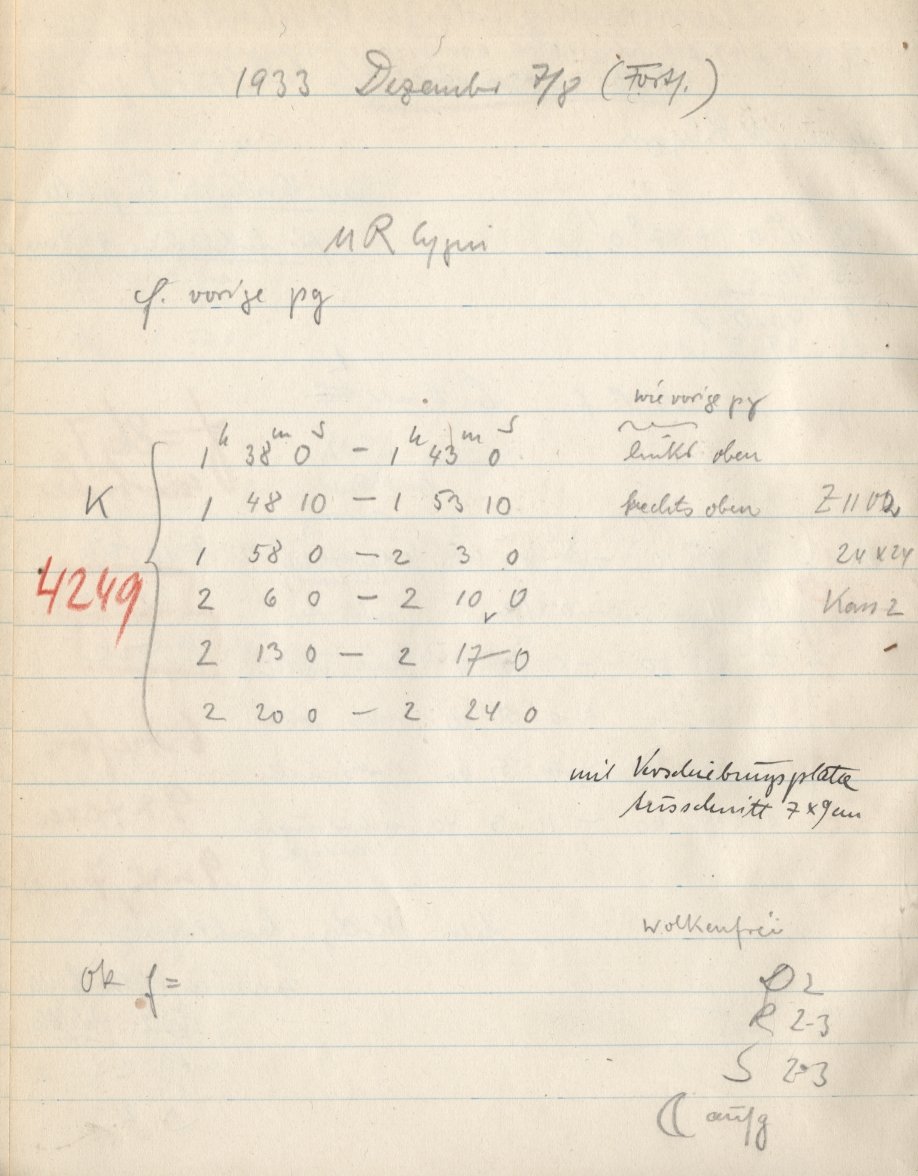 1933 Dezember 7/8 (Forts.)
UR Cygni
cf. vorige pg
wie vorige pg
1h 38m 0s – 1h 43m 0s links oben
K 1 48 10 – 1 53 10 rechts oben Z II
1 58 0 – 2 3 0 24 x 24
4249 2 6 0 – 2 10 0 Kass 2
2 13 0 – 2 17 0
2 20 0 – 2 24 0
mit Verschiebungsplatte
Ausschnitt 7 x 9 cm
wolkenfrei
ok f =
D 2
R 2-3
S 2-3
☾ aufg